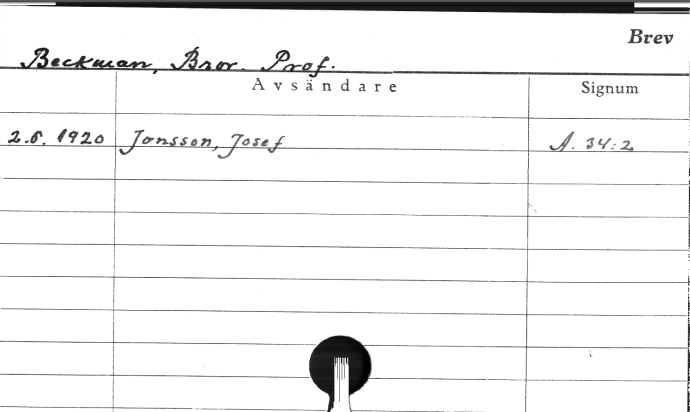 Brev
Beckman, Bror. Prof.
Avsändare Signum
2.6. 1920 Jonsson, Josef A. 34:2